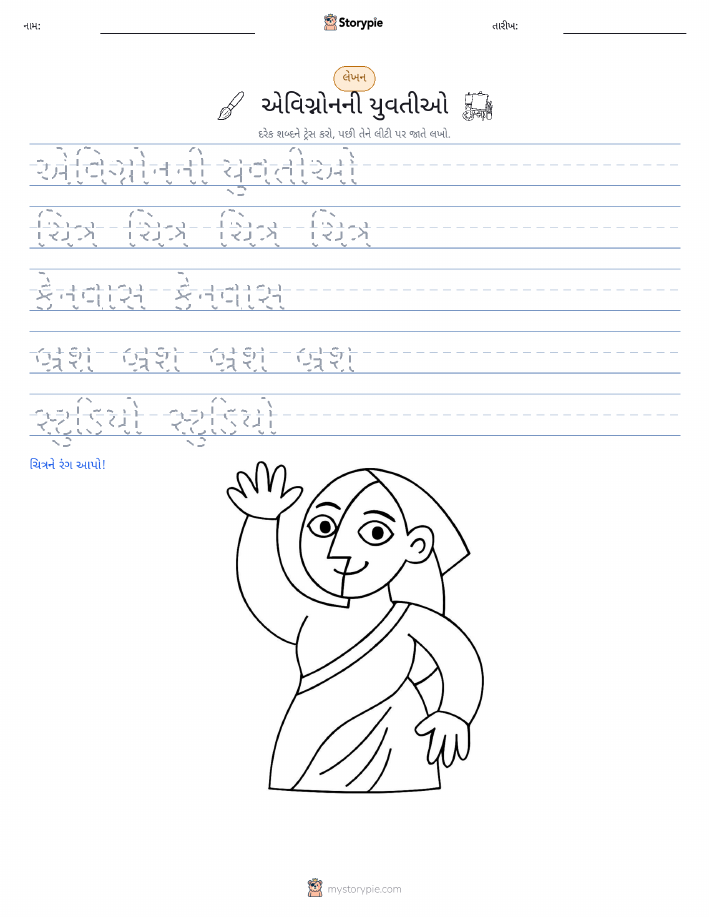 નામ:
Storypie
તારીખ:
લેખન
એવિગ્નોનની યુવતીઓ
દરેક શબ્દને ટ્રેસ કરો, પછી તેને લીટી પર જાતે લખો.
એવિગ્નોનની યુવતીઓ
ચિત્ર ચિત્ર ચિત્ર ચિત્ર
કેનવાસ કેનવાસ
બ્રશ બ્રશ બ્રશ બ્રશ
સ્ટુડિયો સ્ટુડિયો
ચિત્રને રંગ આપો!
mystorypie.com